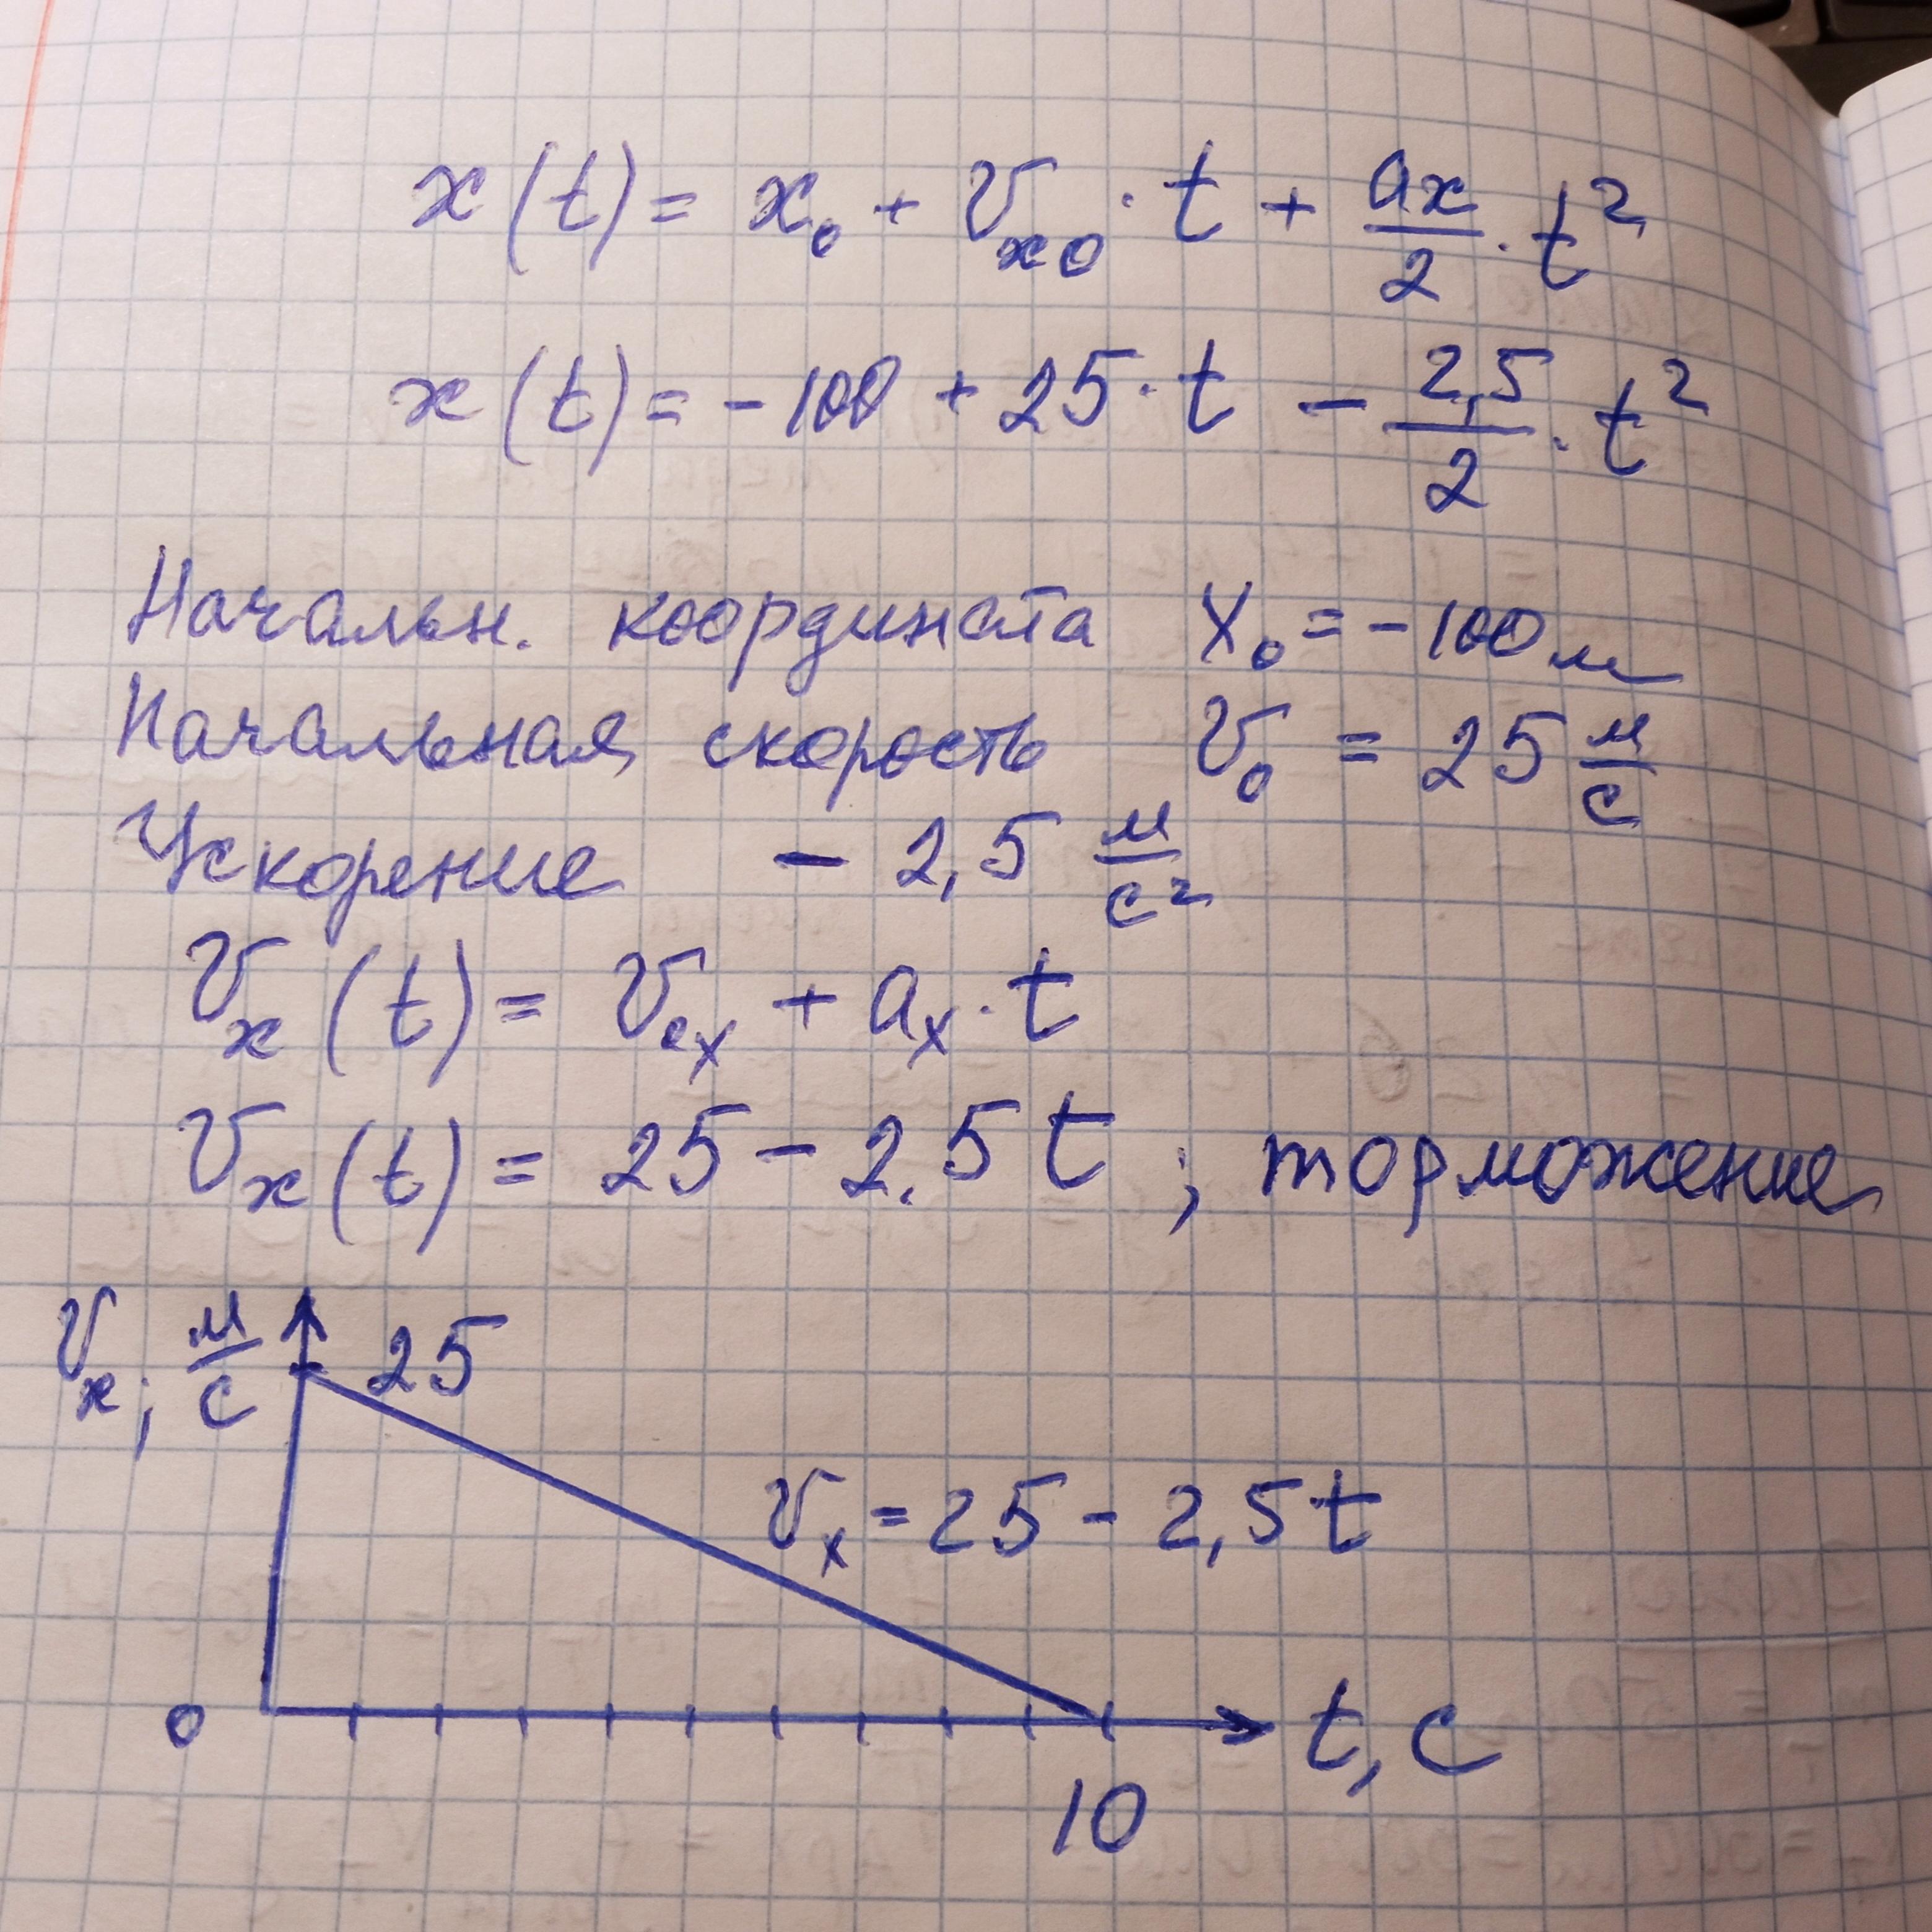 x(t) = x₀ + v_x0 · t + aₓ/2 · t²
x(t) = -100 + 25 · t - 2,5/2 · t²
Начальн. координата X₀ = -100 м
Начальная скорость v₀ = 25 м/с
Ускорение - 2,5 м/с²
vₓ(t) = v₀ₓ + aₓ · t
vₓ(t) = 25 - 2.5t ; торможение
vₓ; м/с 25
vₓ = 25 - 2,5t
0 t, c
10